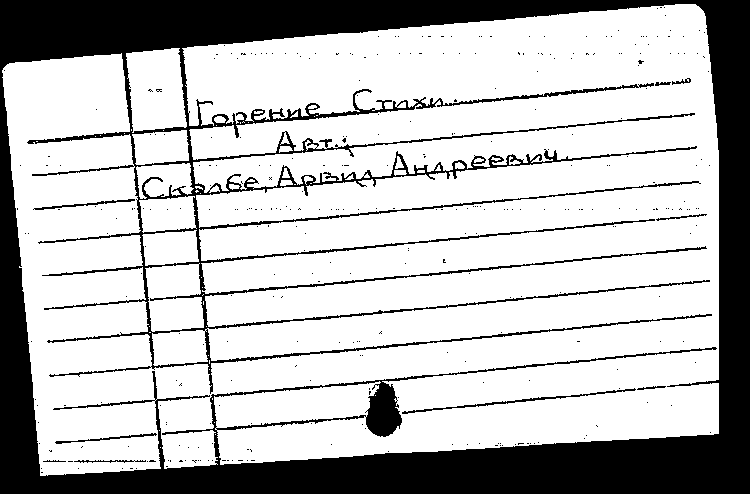 Горение Стихи.
Авт.:
Скалбе, Арвид Андреевич.